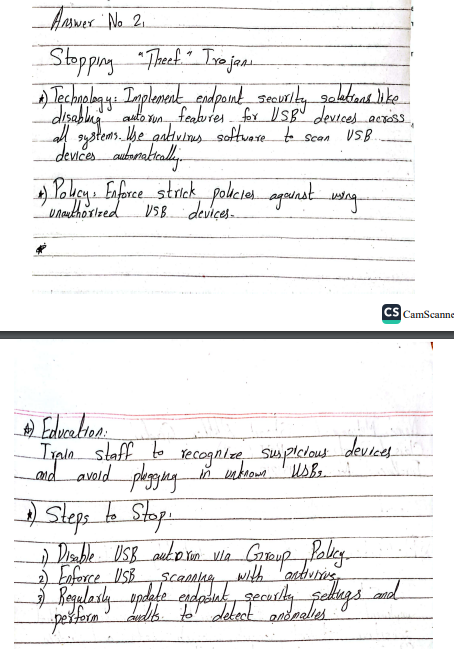 Answer No 2,
Stopping "Theef" Trojan.
*) Technology: Implement endpoint security solutions like
disabling autorun features for USB devices across
all systems. Use antivirus software to scan USB
devices automatically.
*) Policy: Enforce strick policies against using
unauthorized USB devices.
*
CS CamScanne
*) Education:
Train staff to recognize suspicious devices
and avoid plugging in unknown USBs.
*) Steps to Stop:
1) Disable USB autorun via Group Policy.
2) Enforce USB scanning with antivirus
3) Regularly update endpoint security settings and
perform audits to detect anomalies